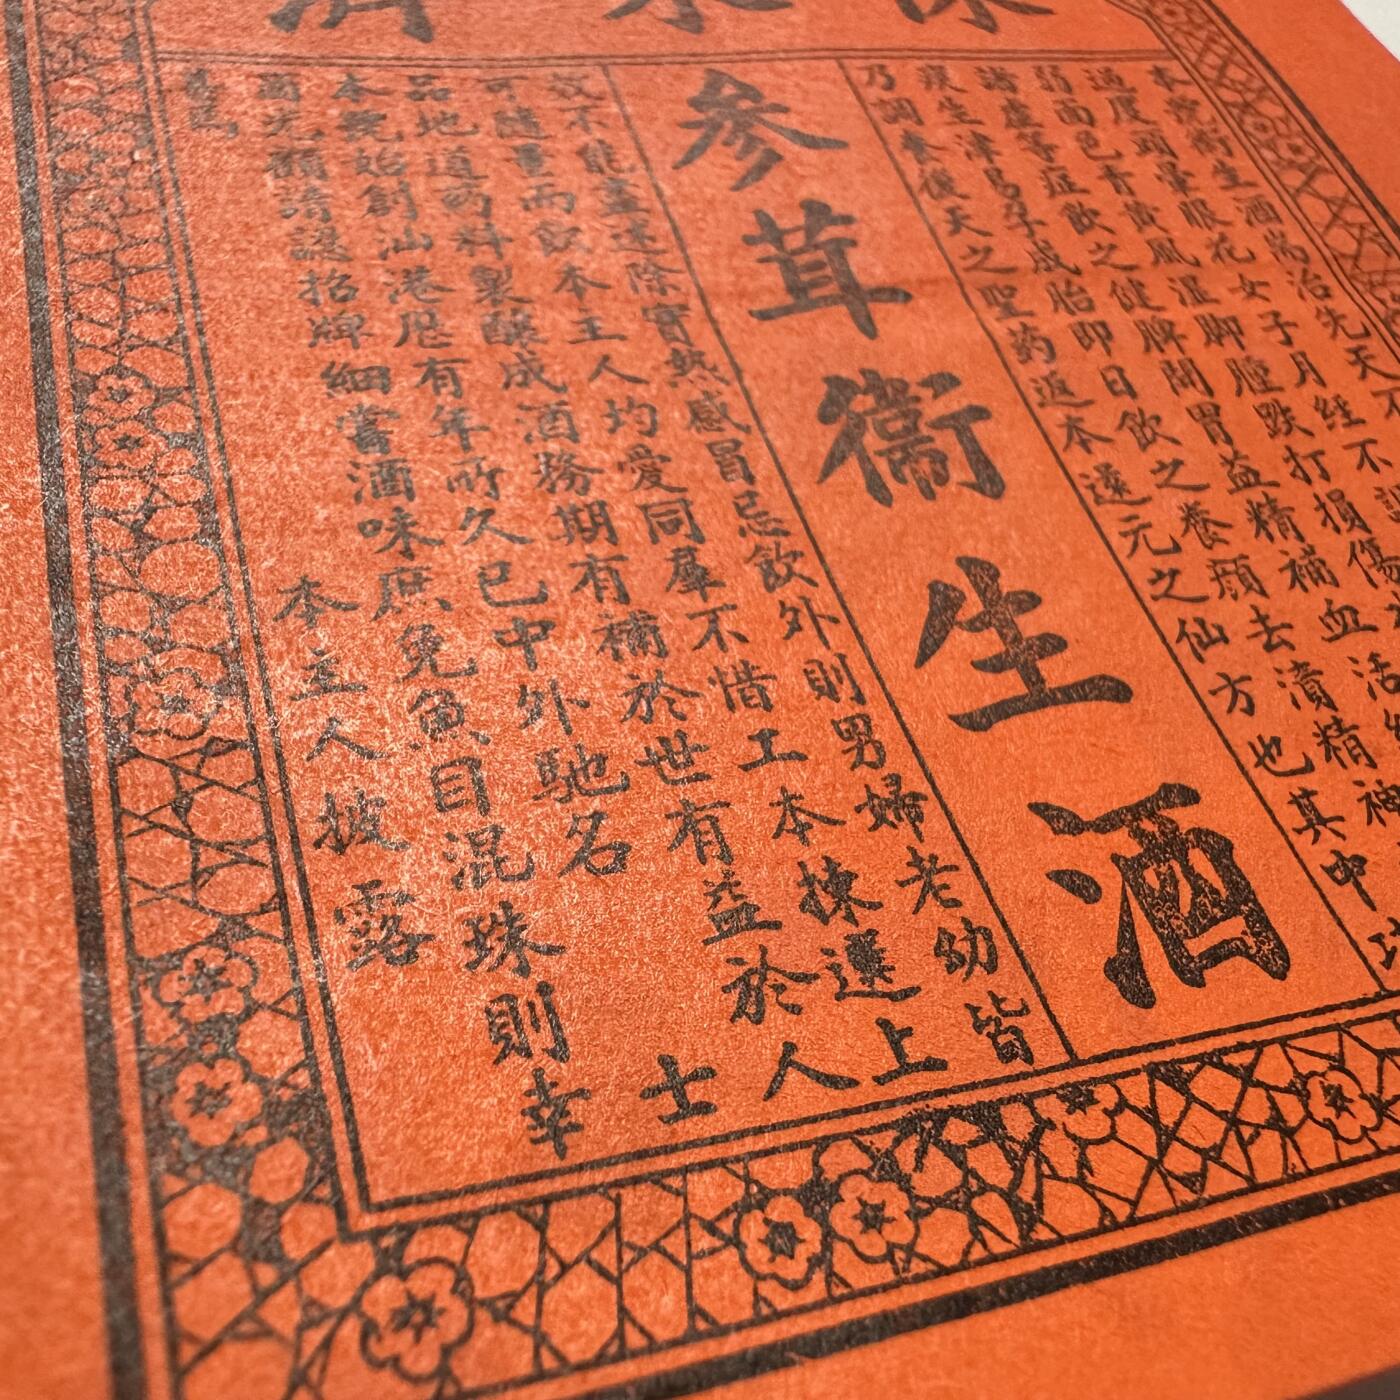 本號衛生酒耑治先天不
過度頭暈眼花女子月經不
弱面色青黃風濕脚腫跌打損傷
諸虛等症飲之健脾開胃益精補血活
痰生津易孕成胎即日飲之養顔去漬精神
乃調養後天之聖葯返本還元之仙方也其中功
參茸衞生酒
效不能盡述除實熱感冒忌飲外則男婦老幼皆
可隨量而飲本主人均愛同羣不惜工本揀選上
品地道葯料製釀成酒務期有補於世有益於人
本號始創汕港歷有年所久已中外馳名 士
商光顧請認招牌細嘗酒味庶免魚目混珠則幸
甚焉 本主人披露